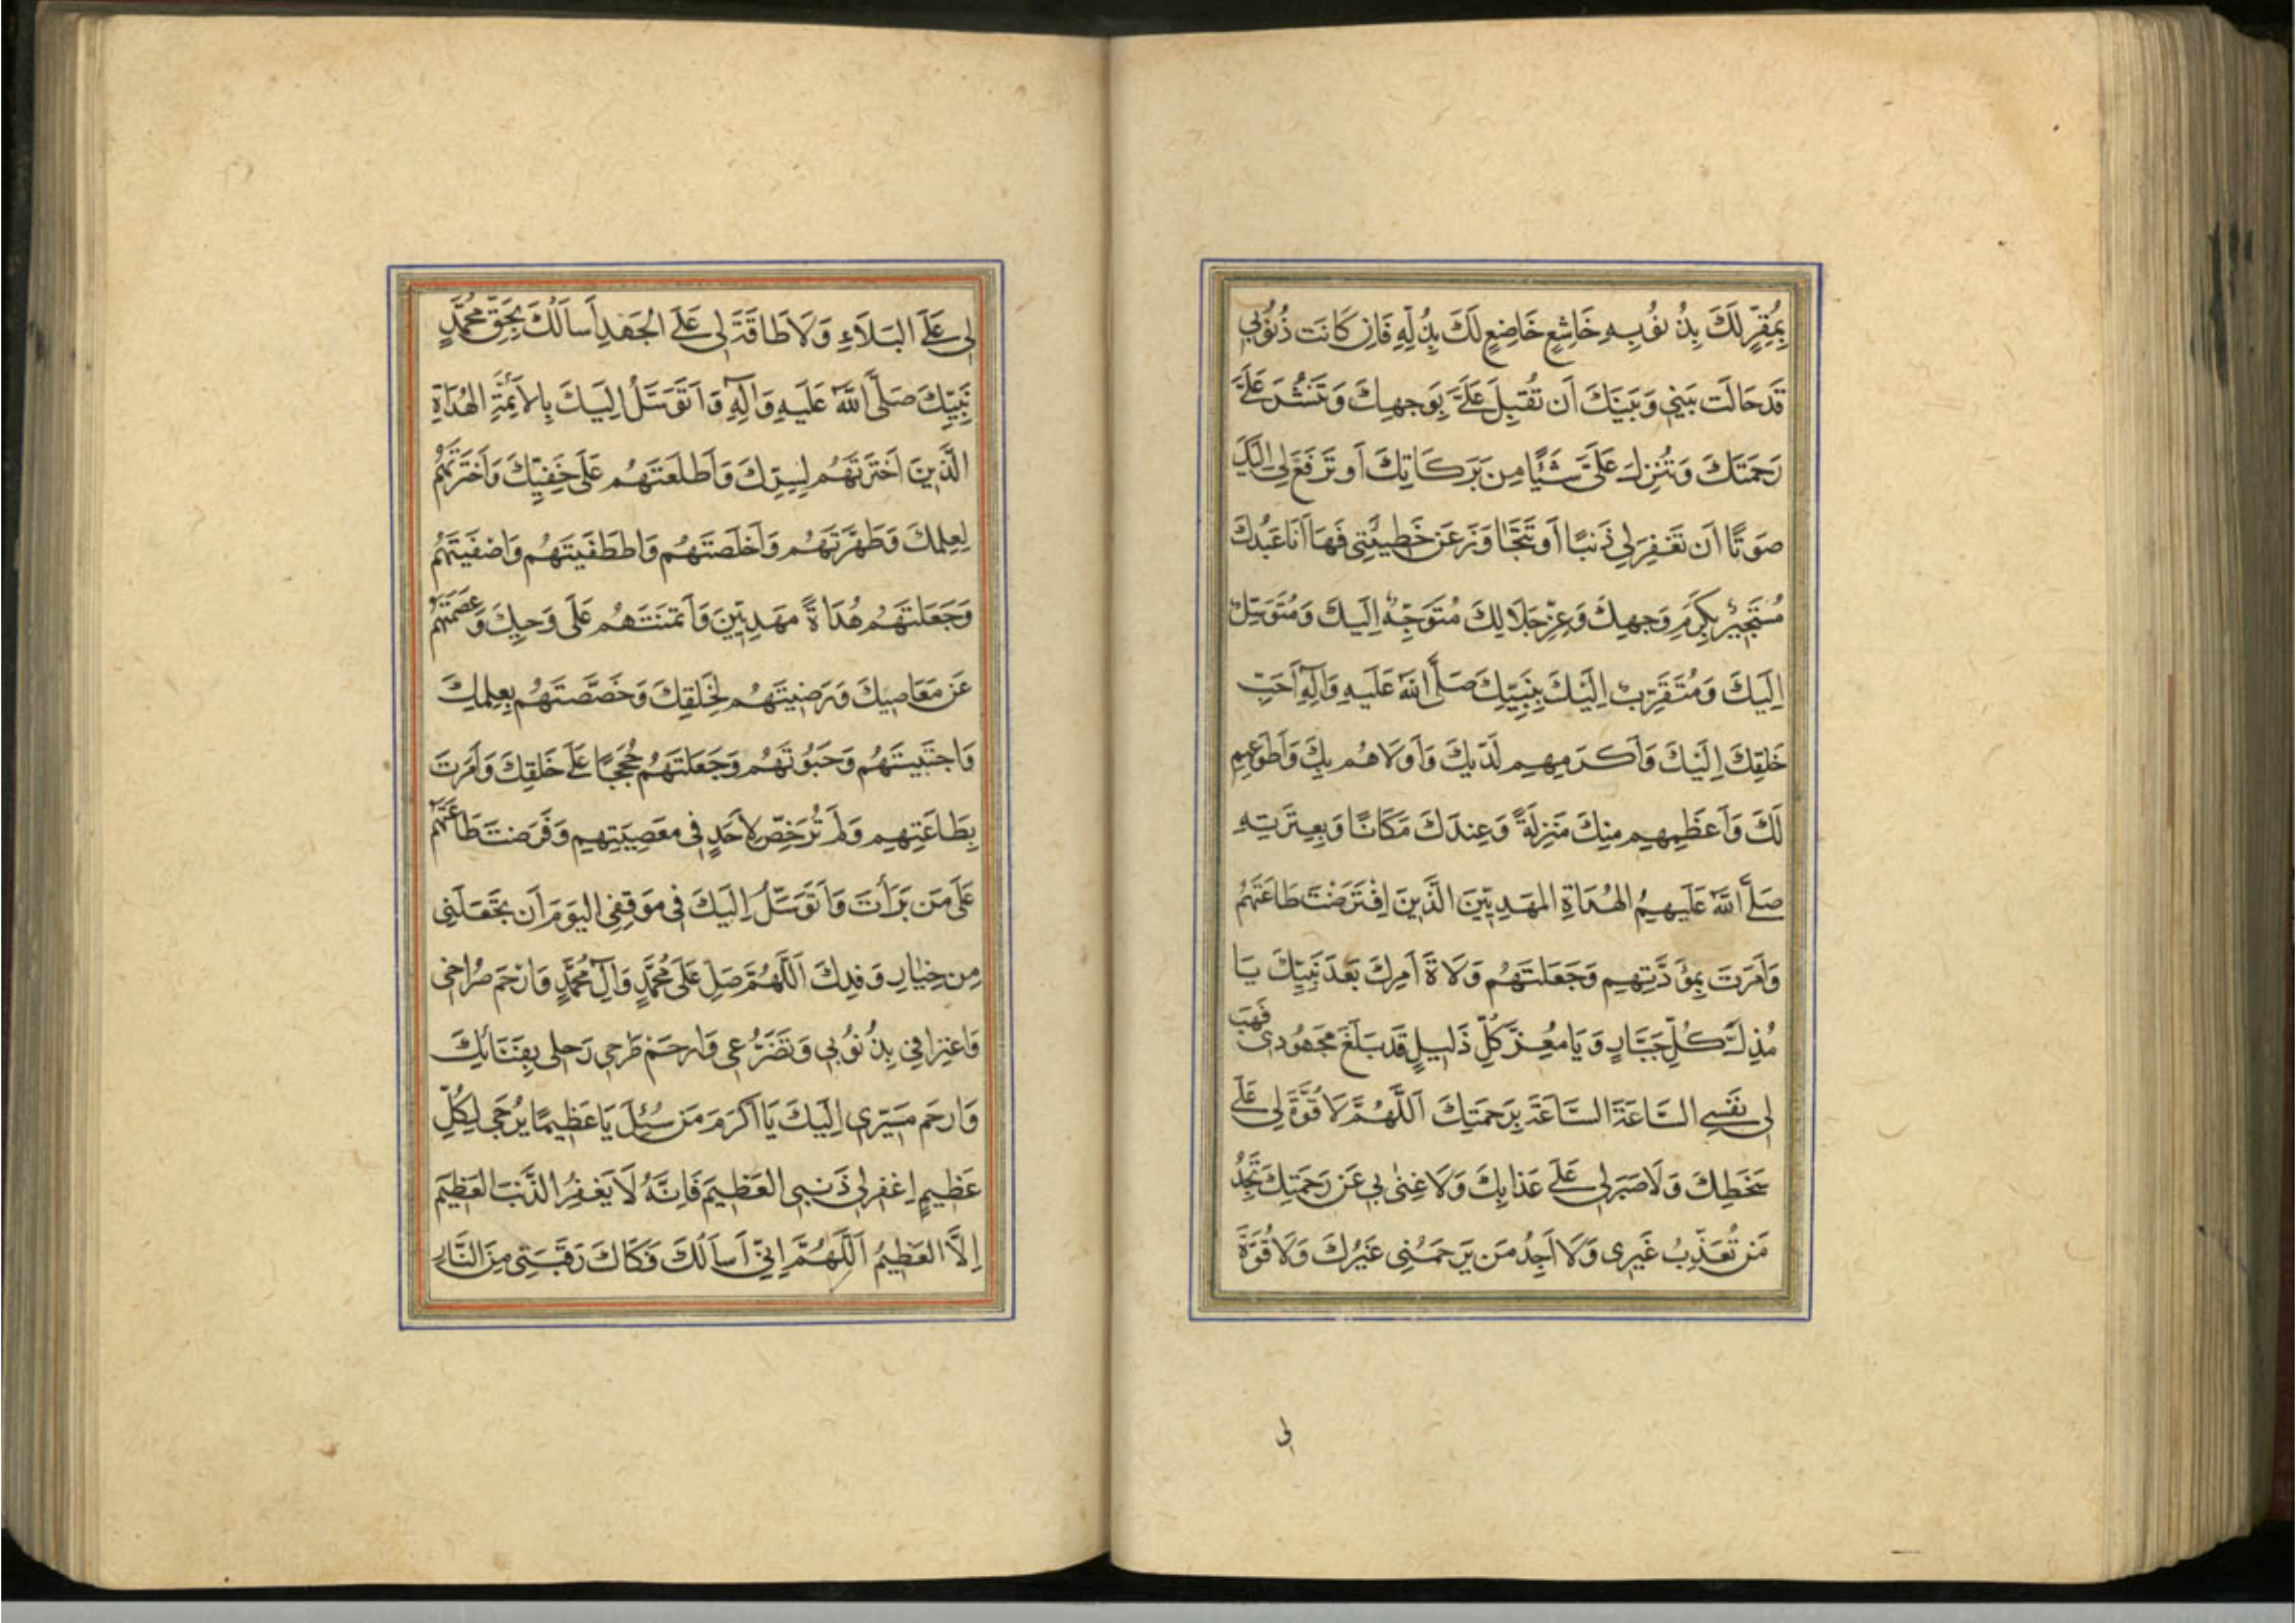 بِمُقِرٍّ لَكَ بِذُنُوبِهِ خَاشِعٍ خَاضِعٍ لَكَ بِذُلِّهِ فَاِن كَانَت ذُنُوبِي
قَد حَالَت بَينِي وَبَينَكَ أَن تُقبِلَ عَلَيَّ بِوَجهِكَ وَتَنشُرَ عَلَيَّ
رَحمَتَكَ وَتُنزِلَ عَلَيَّ شَيئًا مِن بَرَكَاتِكَ أَو تَرفَعَ لِي اِلَيكَ
صَوتًا اَن تَغفِرَ لِي ذَنبًا اَو تَتَجَاوَزَ عَن خَطِيئَتِي فَهَا اَنَا عَبدُكَ
مُستَجِيرٌ بِكَرَمِ وَجهِكَ وَعِزِّ جَلَالِكَ مُتَوَجِّهٌ اِلَيكَ وَمُتَوَسِّلٌ
اِلَيكَ وَمُتَقَرِّبٌ اِلَيكَ بِنَبِيِّكَ صَلَّى اللهُ عَلَيهِ وَآلِهِ اَحَبِّ
خَلقِكَ اِلَيكَ وَاَكرَمِهِم لَدَيكَ وَاَولَاهُم بِكَ وَاَطوَعِهِم
لَكَ وَاَعظَمِهِم مِنكَ مَنزِلَةً وَعِندَكَ مَكَانًا وَبِعِترَتِهِ
صَلَّى اللهُ عَلَيهِمُ الهُدَاةِ المَهدِيِّينَ الَّذِينَ اِفتَرَضتَ طَاعَتَهُم
وَاَمَرتَ بِمَوَدَّتِهِم وَجَعَلتَهُم وُلَاةَ اَمرِكَ بَعدَ نَبِيِّكَ يَا
مُذِلَّ كُلِّ جَبَّارٍ وَيَا مُعِزَّ كُلِّ ذَلِيلٍ قَد بَلَغَ مَجهُودِي فَهَب
لِي نَفسِي السَّاعَةَ السَّاعَةَ بِرَحمَتِكَ اَللَّهُمَّ لَا قُوَّةَ لِي عَلَى
سَخَطِكَ وَلَا صَبرَ لِي عَلَى عَذَابِكَ وَلَا غِنىٰ بِي عَن رَحمَتِكَ تَجِدُ
مَن تُعَذِّبُ غَيرِي وَلَا اَجِدُ مَن يَرحَمُنِي غَيرُكَ وَلَا قُوَّةَ
لِي
لِي عَلَى البَلَاءِ وَلَا طَاقَةَ لِي عَلَى الجَهدِ اَسأَلُكَ بِحَقِّ مُحَمَّدٍ
نَبِيِّكَ صَلَّى اللهُ عَلَيهِ وَآلِهِ وَاَتَوَسَّلُ اِلَيكَ بِالاَئِمَّةِ الهُدَاةِ
الَّذِينَ اختَرتَهُم لِسِرِّكَ وَاَطلَعتَهُم عَلَى خَفِيِّكَ وَاختَرتَهُم
لِعِلمِكَ وَطَهَّرتَهُم وَاَخلَصتَهُم وَاصطَفَيتَهُم وَاصفَيتَهُم
وَجَعَلتَهُم هُدَاةً مَهدِيِّينَ وَائتَمَنتَهُم عَلَى وَحيِكَ وَعَصَمتَهُم
عَن مَعَاصِيكَ وَرَضِيتَهُم لِخَلقِكَ وَخَصَّصتَهُم بِعِلمِكَ
وَاجتَبَيتَهُم وَحَبَوتَهُم وَجَعَلتَهُم حُجَجًا عَلَى خَلقِكَ وَاَمَرتَ
بِطَاعَتِهِم وَلَم تُرَخِّص لِاَحَدٍ فِي مَعصِيَتِهِم وَفَرَضتَ طَاعَتَهُم
عَلَى مَن بَرَأتَ وَاَتَوَسَّلُ اِلَيكَ فِي مَوقِفِي اليَومَ اَن تَجعَلَنِي
مِن خِيَارِ وَفدِكَ اَللَّهُمَّ صَلِّ عَلَى مُحَمَّدٍ وَآلِ مُحَمَّدٍ وَارحَم صُرَاخِي
وَاعتِرَافِي بِذُنُوبِي وَتَضَرُّعِي وَارحَم طَرحِي رَحلِي بِفِنَائِكَ
وَارحَم مَسِيرِي اِلَيكَ يَا اَكرَمَ مَن سُئِلَ يَا عَظِيمًا يُرجَى لِكُلِّ
عَظِيمٍ اِغفِر لِي ذَنبِي العَظِيمَ فَاِنَّهُ لَا يَغفِرُ الذَّنبَ العَظِيمَ
اِلَّا العَظِيمُ اَللَّهُمَّ اِنِّي اَسأَلُكَ فَكَاكَ رَقَبَتِي مِنَ النَّارِ